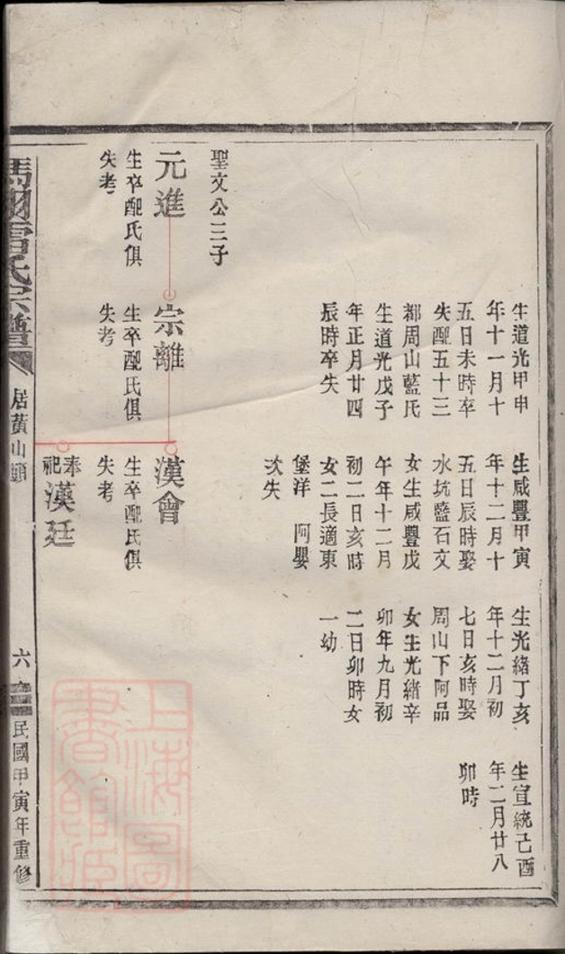 生道光甲申
年十一月十
五日未時卒
失配五十三
都周山藍氏
生道光戊子
年正月廿四
辰時卒失
生咸豐甲寅
年十二月十
五日辰時娶
水坑藍石文
女生咸豐戊
午年十二月
初二日亥時
女二長適東
堡洋 阿嬰
次失
生光緒丁亥
年十二月初
七日亥時娶
周山下阿品
女生光緒辛
卯年九月初
二日卯時女
一幼
生宣統己酉
年二月廿八
卯時
聖文公三子
元進
生卒配氏俱
失考
宗離
生卒配氏俱
失考
漢會
生卒配氏俱
失考
奉祀漢廷
馮翊雷氏宗譜
居黃山頭
六
民國甲寅年重修
上海圖書館藏